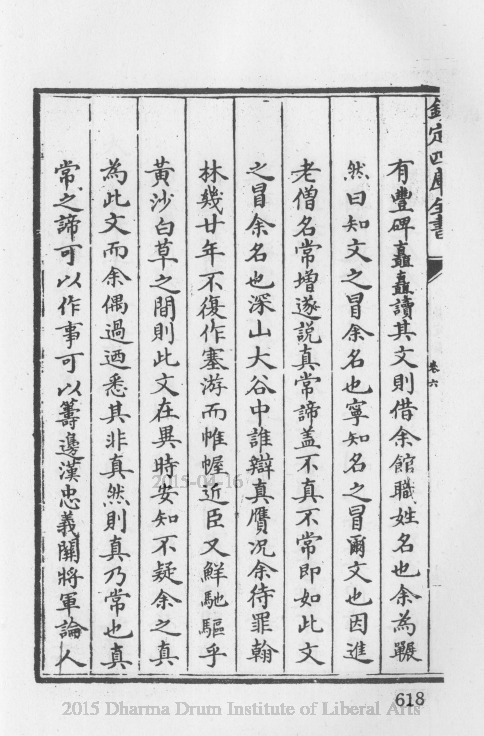 欽定四庫全書
卷六
有豐碑矗矗讀其文則借余館職姓名也余為囅
然曰知文之冒余名也寧知名之冒爾文也因進
老僧名常增遂説真常諦盖不真不常即如此文
之冒余名也深山大谷中誰辯真贋況余待罪翰
林幾廿年不復作塞游而帷幄近臣又鮮馳驅乎
黄沙白草之間則此文在異時安知不疑余之真
為此文而余偶過迺悉其非真然則真乃常也真
常之諦可以作事可以籌邊漢忠義關將軍論人
2015-04-16
618
2015 Dharma Drum Institute of Liberal Arts